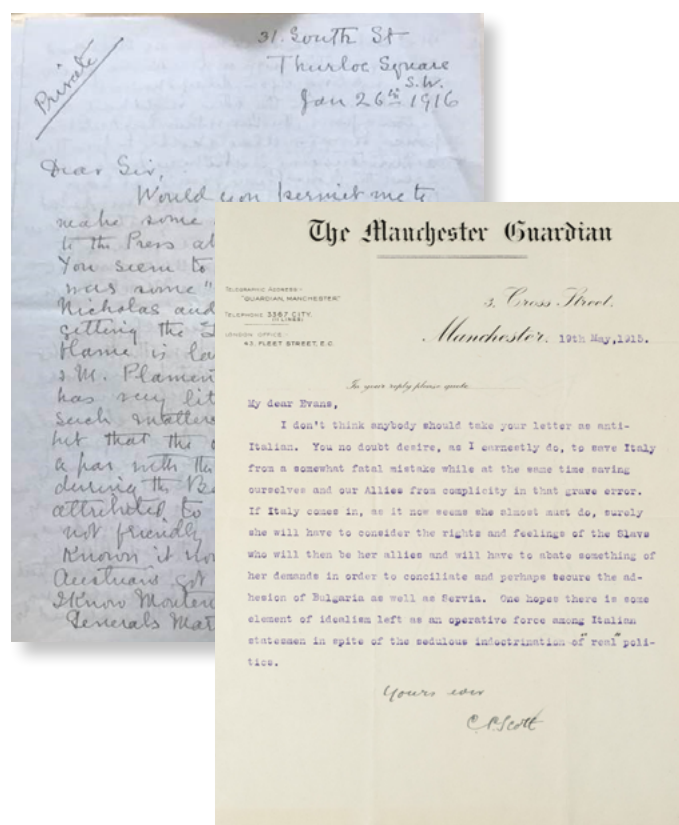 Private
31. South St
Thurloe Square
S.W.
Jan 26th 1916
Dear Sir,
Would you permit me to
make some
to the Press
You seem to
was some "
Nicholas and
getting the
blame is
& M.
has very
such matters
but that the
a par with the
during the
attributed to
not friendly
Known it
Austrians got
I Know
Generals
The Manchester Guardian
TELEGRAPHIC ADDRESS:-
"GUARDIAN, MANCHESTER"
TELEPHONE 3367 CITY.
(11 LINES)
LONDON OFFICE:-
43, FLEET STREET, E.C.
3, Cross Street,
Manchester, 19th May, 1915.
In your reply please quote
My dear Evans,
I don't think anybody should take your letter as anti-
Italian. You no doubt desire, as I earnestly do, to save Italy
from a somewhat fatal mistake while at the same time saving
ourselves and our Allies from complicity in that grave error.
If Italy comes in, as it now seems she almost must do, surely
she will have to consider the rights and feelings of the Slavs
who will then be her allies and will have to abate something of
her demands in order to conciliate and perhaps secure the ad-
hesion of Bulgaria as well as Servia. One hopes there is some
element of idealism left as an operative force among Italian
statesmen in spite of the sedulous indoctrination of "real" poli-
tics.
Yours ever
C.P. Scott